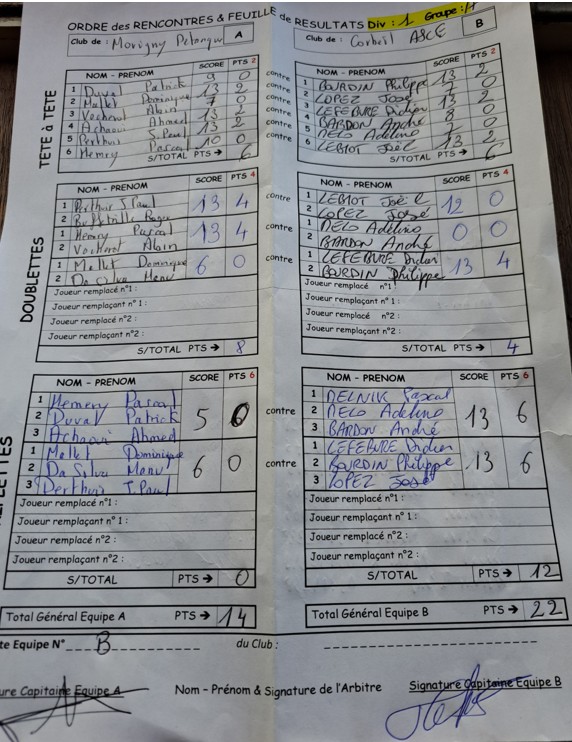 ORDRE des RENCONTRES & FEUILLE de RESULTATS Div : 1 Groupe : H
Club de : Morigny Petanque A
Club de : Corbeil ASCE B
TÊTE à TÊTE
NOM - PRENOM SCORE PTS 2 contre NOM - PRENOM SCORE PTS 2
1 Duval Patrick 9 0 contre 1 BOURDIN Philippe 13 2
2 Mallet Dominique 13 2 contre 2 LOPEZ José 7 0
3 Vochenet Alain 7 0 contre 3 LEFEBURE Didier 13 2
4 Achaoui Ahmed 13 2 contre 4 BARDON André 8 0
5 Perthuis J.Paul 13 2 contre 5 NELO Adelino 7 0
6 Hemery Pascal 10 0 6 LEBIOT Joël 13 2
S/TOTAL PTS → 6 S/TOTAL PTS → 6
DOUBLETTES
NOM - PRENOM SCORE PTS 4 NOM - PRENOM SCORE PTS 4
1 Perthuis J Paul 13 4 contre 1 LEBIOT Joël 12 0
2 2 LOPEZ José
1 Hemery Pascal 13 4 contre 1 NELO Adelino 0 0
2 Vochenet Alain 2 BARDON André
1 Mallet Dominique 6 0 contre 1 LEFEBURE Didier 13 4
2 Da Silva Manu 2 BOURDIN Philippe
Joueur remplacé n°1 : Joueur remplacé n°1 :
Joueur remplaçant n°1 : Joueur remplaçant n°1 :
Joueur remplacé n°2 : Joueur remplacé n°2 :
Joueur remplaçant n°2 : Joueur remplaçant n°2 :
S/TOTAL PTS → 8 S/TOTAL PTS → 4
NOM - PRENOM SCORE PTS 6 NOM - PRENOM SCORE PTS 6
1 Hemery Pascal 1 DELNIK Pascal
2 Duval Patrick 5 0 contre 2 NELO Adelino 13 6
3 Achaoui Ahmed 3 BARDON André
1 Mallet Dominique 1 LEFEBURE Didier
2 Da Silva Manu 6 0 contre 2 BOURDIN Philippe 13 6
3 Perthuis J.Paul 3 LOPEZ José
Joueur remplacé n°1 : Joueur remplacé n°1 :
Joueur remplaçant n°1 : Joueur remplaçant n°1 :
Joueur remplacé n°2 : Joueur remplacé n°2 :
Joueur remplaçant n°2 : Joueur remplaçant n°2 :
S/TOTAL PTS → 0 S/TOTAL PTS → 12
Total Général Equipe A PTS → 14 Total Général Equipe B PTS → 22
te Equipe N° B du Club :
ure Capitaine Equipe A Nom - Prénom & Signature de l'Arbitre Signature Capitaine Equipe B